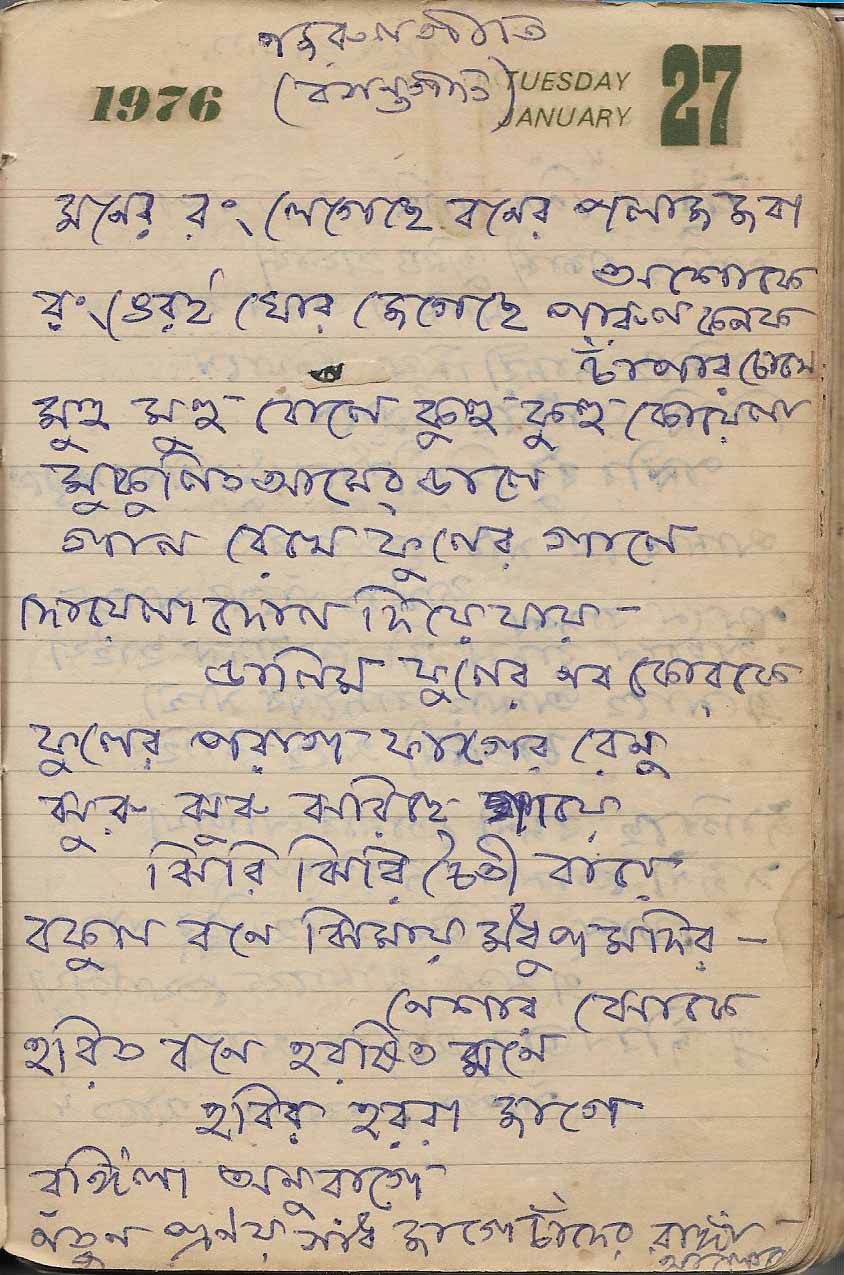 নজরুল গীতি
(বসন্তগীতি)
1976
TUESDAY
JANUARY
27
মনের রং লেগেছে বনের পলাশ জবা
অশোকে
রং এর ঘোর জেগেছে পারুল কনক
চাঁপার চোখে
মুহু মুহু বোলে কুহু কুহু কোয়েলা
মুকুলিত আমের ডালে
গাল রেখে ফুলের গালে
দোয়েলা দোল দিয়ে যায় –
ডালিম ফুলের নব কোরকে
ফুলের পরাগ ফাগের রেনু
ঝুরু ঝুরু ঝরিছে গায়ে
ঝিরি ঝিরি চৈতী বায়ে
বকুল বনে ঝিমায় মধুপ মদির –
নেশার ঝোঁকে
হরিত বনে হরষিত মনে
হরির হররা জাগে
রঙ্গিলা অনুরাগে
নতুন প্রণয় সাধ জাগে চাঁদের রাঙ্গা
আলোকে